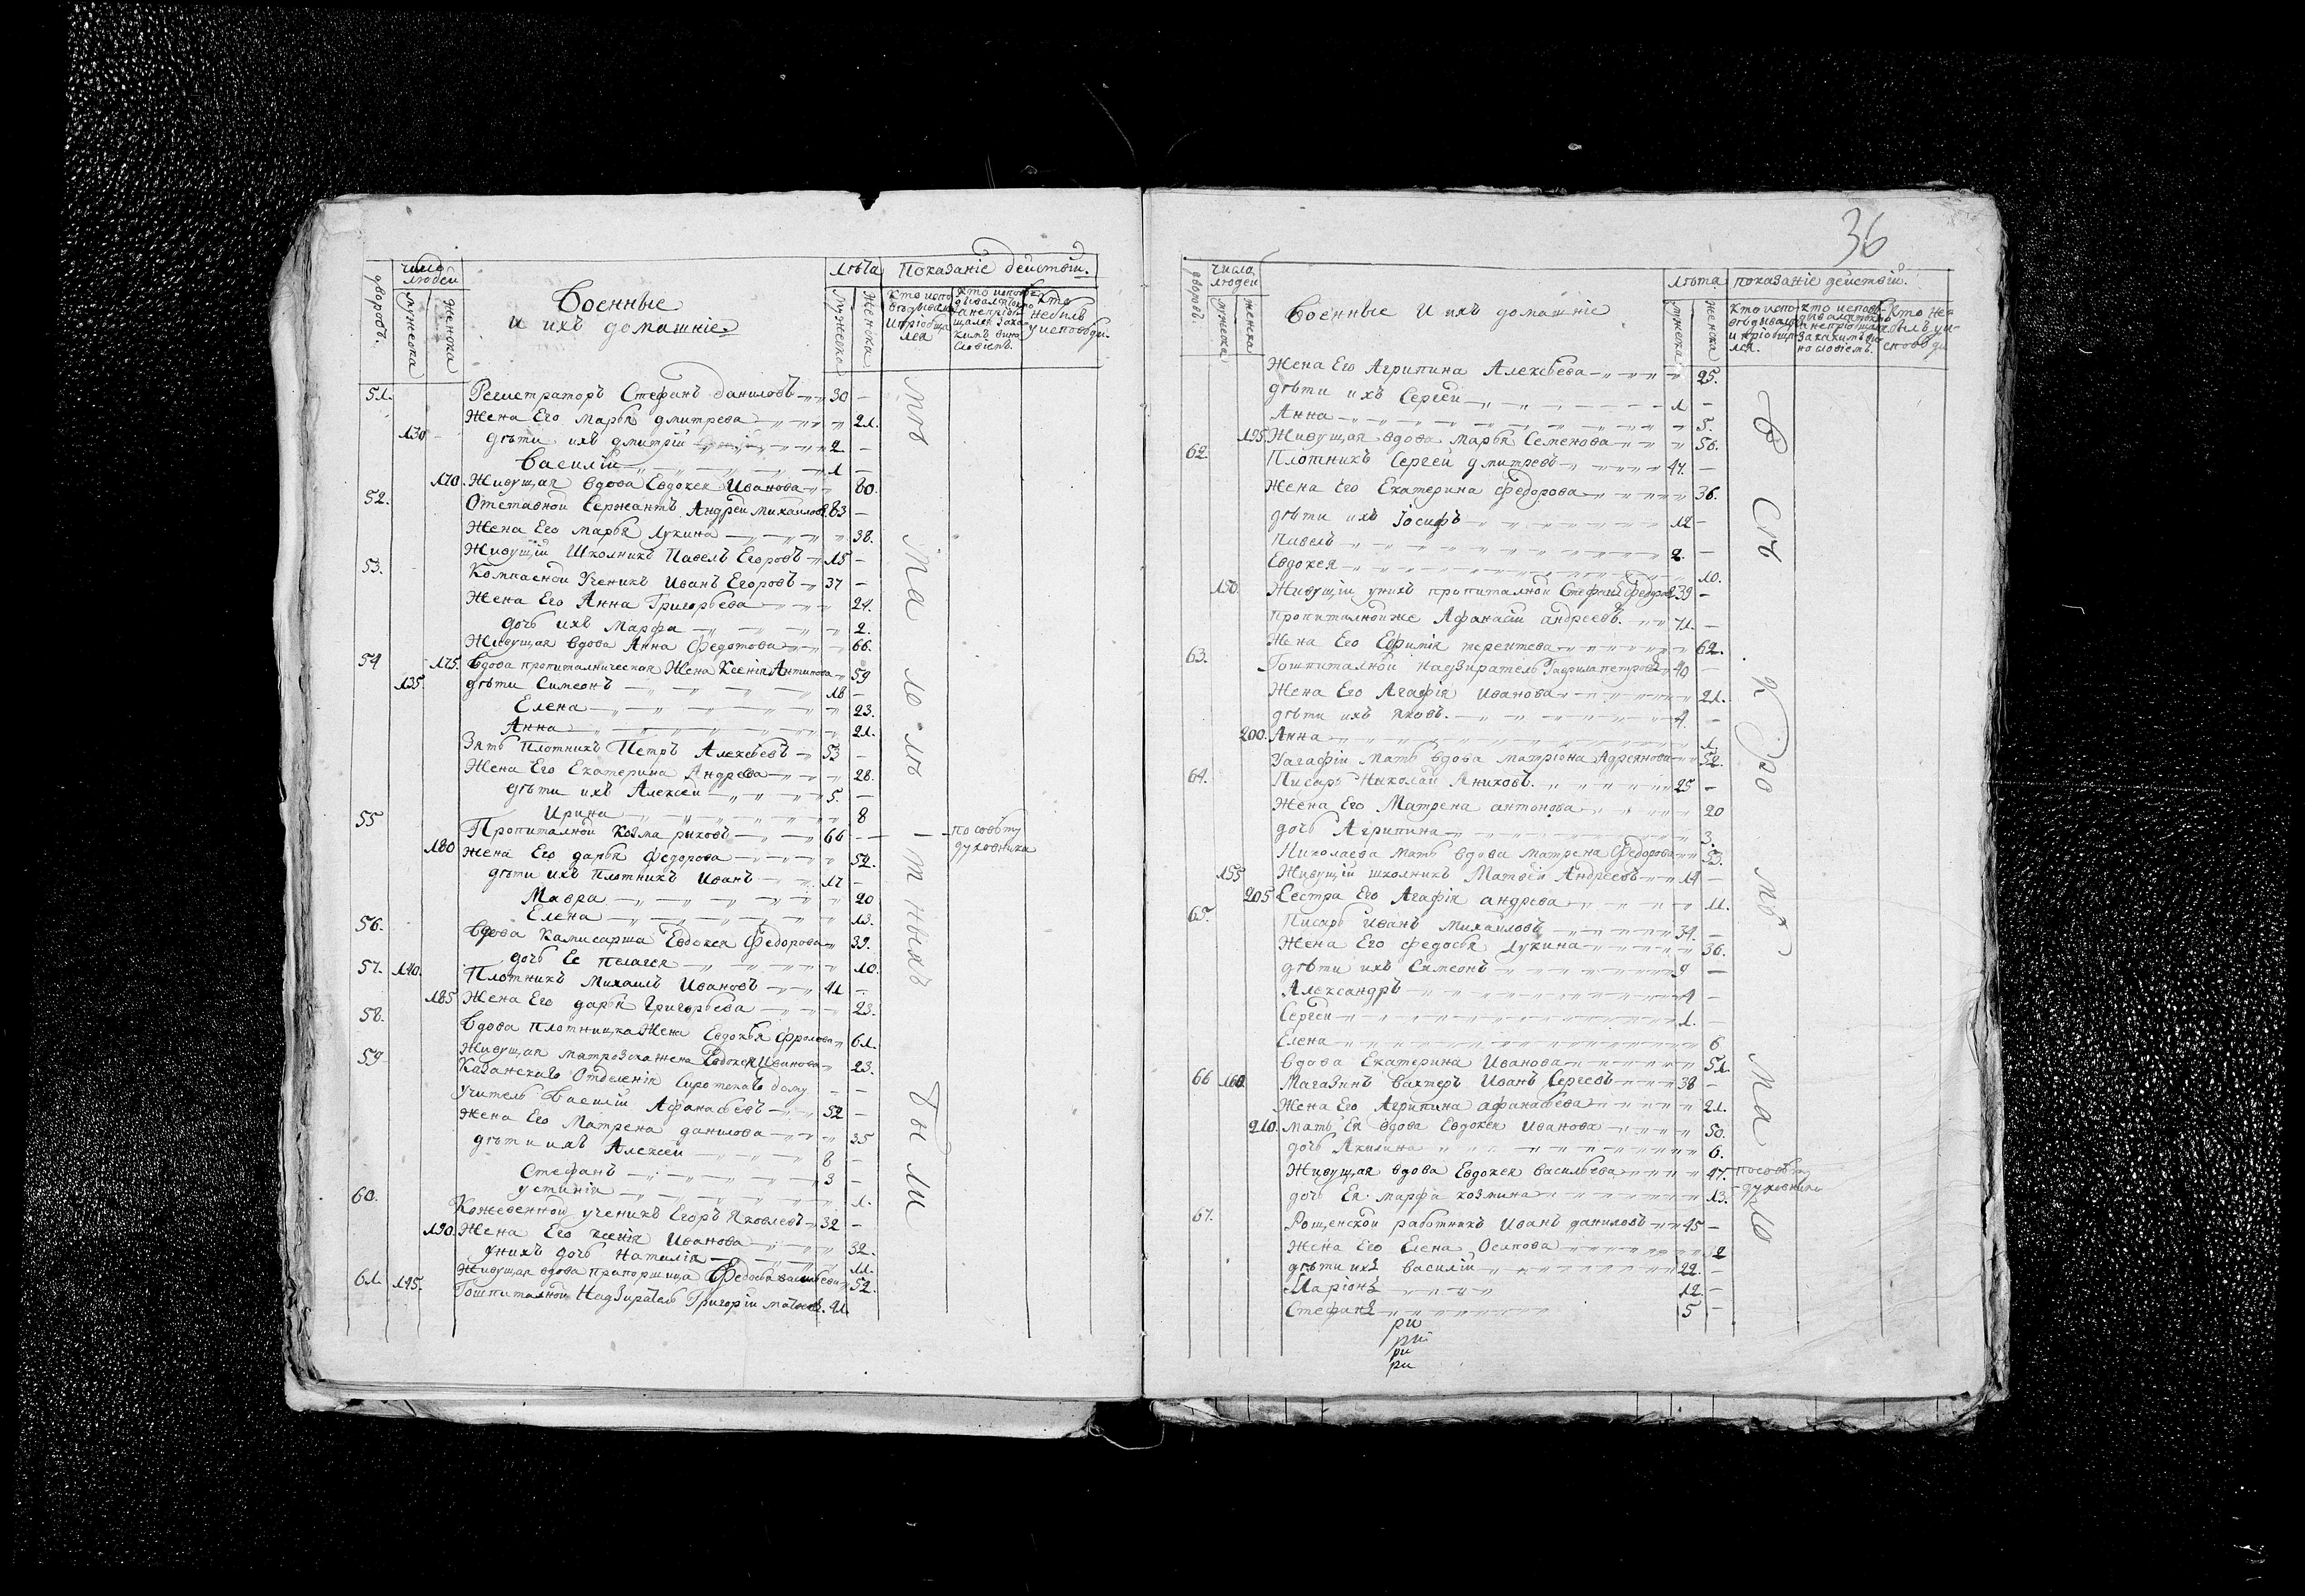 дворовъ.
число людей
мужеска
женска
Военные
и ихъ домашніе
лѣта
мужеска
женска
Показаніе действіи.
кто испо
и пріобща
лся
кто
у исповѣди.
51. Регистраторъ Стефанъ Даниловъ 30 -
Жена Его Марья Дмитрева 21.
130 дѣти ихъ Дмитрій 2 -
Василій 1 -
170. Живущая вдова Евдокея Иванова 80.
52. Отставной Сержантъ Андрей Михаиловъ 83 -
Жена Его Марья Лукина 38.
Живущій Школникъ Павелъ Егоровъ 15 -
53. Компасной Ученикъ Иванъ Егоровъ 37 -
Жена Его Анна Григорьева 24.
дочь ихъ Марфа 2.
Живущая вдова Анна Федотова 66.
54 175. Вдова пропиталническая Жена Ксенія Антипова 59
135 дѣти Симеонъ 18 -
Елена 23.
Анна 21.
Зять Плотникъ Петръ Алексѣевъ 53 -
Жена Его Екатерина Андрева 28.
дѣти ихъ Алексѣй 5. -
Ирина 8
55 Пропиталной Козма рыковъ 66 - - по совѣту
180 Жена Его дарья Федорова 52. духовника
дѣти ихъ Плотникъ Иванъ 17 -
Мавра 20
Елена 13.
56. Вдова Камисарша Евдокея Федорова 39.
дочь Ее Пелагея 10.
57. 140. Плотникъ Михаилъ Ивановъ 41 -
185 Жена Его дарья Григорьева 23.
58. Вдова плотницка Жена Евдокѣя Фролова 61.
Живущая матрозска жена Евдокея Иванова 23.
59 Казанскаго Отделенія Сиротскаго дому - -
Учитель Василій Афанасьевъ 52 -
Жена Его Матрена данилова 35
дѣти ихъ Алексѣй 8 -
Стефанъ 3 -
устинія 1.
60. Кожевенной ученикъ Егоръ Яковлевъ 32 -
190. Жена Его ксенія Иванова 32.
унихъ дочь Наталія 11.
Живущая вдова прапорщица Федосья васильева 52.
61. 145. Гошпиталной Надзиратель Григорій 41
были
36
дворовъ.
число людей
мужеска
женска
Военные и ихъ домашніе
лѣта
мужеска
женска
показаніе действій.
Жена Его Агрипина Алексѣева 25.
дѣти ихъ Сергей 1 -
Анна 5.
195 Живущая вдова Марья Семенова 56.
62. Плотникъ Сергей дмитревъ 44. -
Жена Его Екатерина Федорова 36.
дѣти ихъ Іосифъ 12 -
Павелъ 2. -
Евдокея 10.
150 Живущій унихъ пропиталной Стефанъ Федоровъ 39 -
Пропиталной же Афанасій андреевъ. 71. -
Жена Его Ефимія терентева 62.
63. Гошпиталной надзиратель Гаврила петровъ 40 -
Жена Его Агафія Иванова 21.
дѣти ихъ Яковъ. 4. -
200. Анна 1.
Уагафіи мать вдова матріона Адреянова 52.
64. Писарь Николай Аниковъ. 25 -
Жена Его Матрена антонова 20
дочь Агрипина 3.
Николаева мать вдова матрена Федорова 53.
155 Живущій школникъ Матвей Андреевъ 14 -
205 Сестра Его Агафія андрева 11.
65. Писарь Иванъ Михаиловъ 34. -
Жена Его федосья Лукина 36.
дѣти ихъ Симеонъ 9 -
Александръ 4 -
Сергей 1. -
Елена 6
вдова Екатерина Иванова 51.
66 160 Магазинъ Вахтеръ Иванъ Сергевъ 38 -
Жена Его Агрипина афанасьева 21.
210. Мать Ея вдова Евдокея Иванова 50.
дочь Акилина 6.
Живущая вдова Евдокея васильева 47. по совѣту
дочь Ея марфа козмина 13. духовника
67. Рощенской работникъ Иванъ даниловъ 45 -
Жена Его Елена Осипова 2
дѣти ихъ василій 22. -
Маріонъ 12 -
Стефанъ 5 -
ри
ри
ри
ри